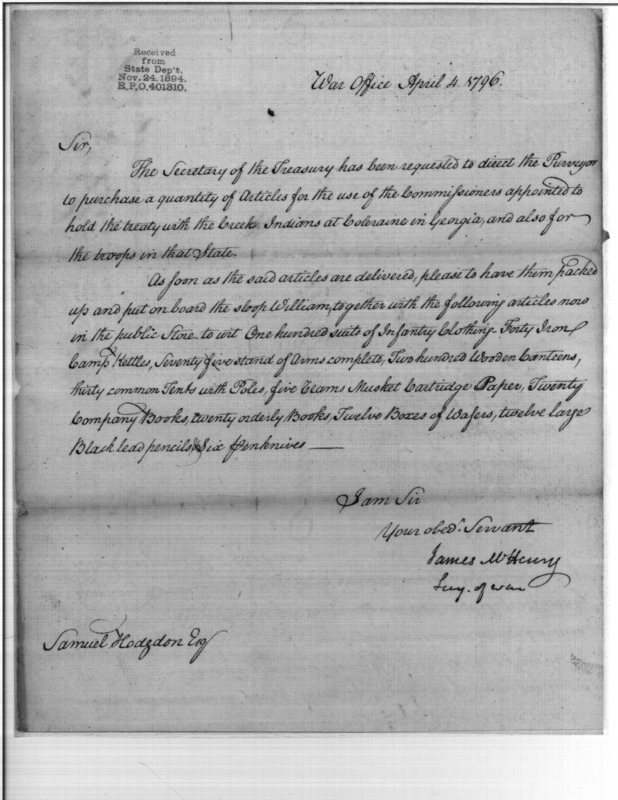 Received
from
State Dep't.
Nov. 24. 1894.
R.P.O. 401310.
War Office April 4. 1796.
Sir,
The Secretary of the Treasury has been requested to direct the Purveyor
to purchase a quantity of Articles for the use of the Commissioners appointed to
hold the treaty with the Creek Indians at Coleraine in Georgia, and also for
the troops in that State.
As soon as the said articles are delivered, please to have them packed
up and put on board the sloop William, together with the following articles now
in the public Store. to wit One hundred suits of Infantry Clothing. Forty Iron
Camp Kettles, Seventy five stand of Arms complete, Two hundred Wooden Canteens,
thirty common Tents with Poles, five Reams Musket Cartridge Paper, Twenty
Company Books, twenty orderly Books, Twelve Boxes of Wafers, twelve large
Black lead pencils & Six Penknives —
I am Sir
Your obedt. Servant
James McHenry
Secy. of war
Samuel Hodgdon Esq